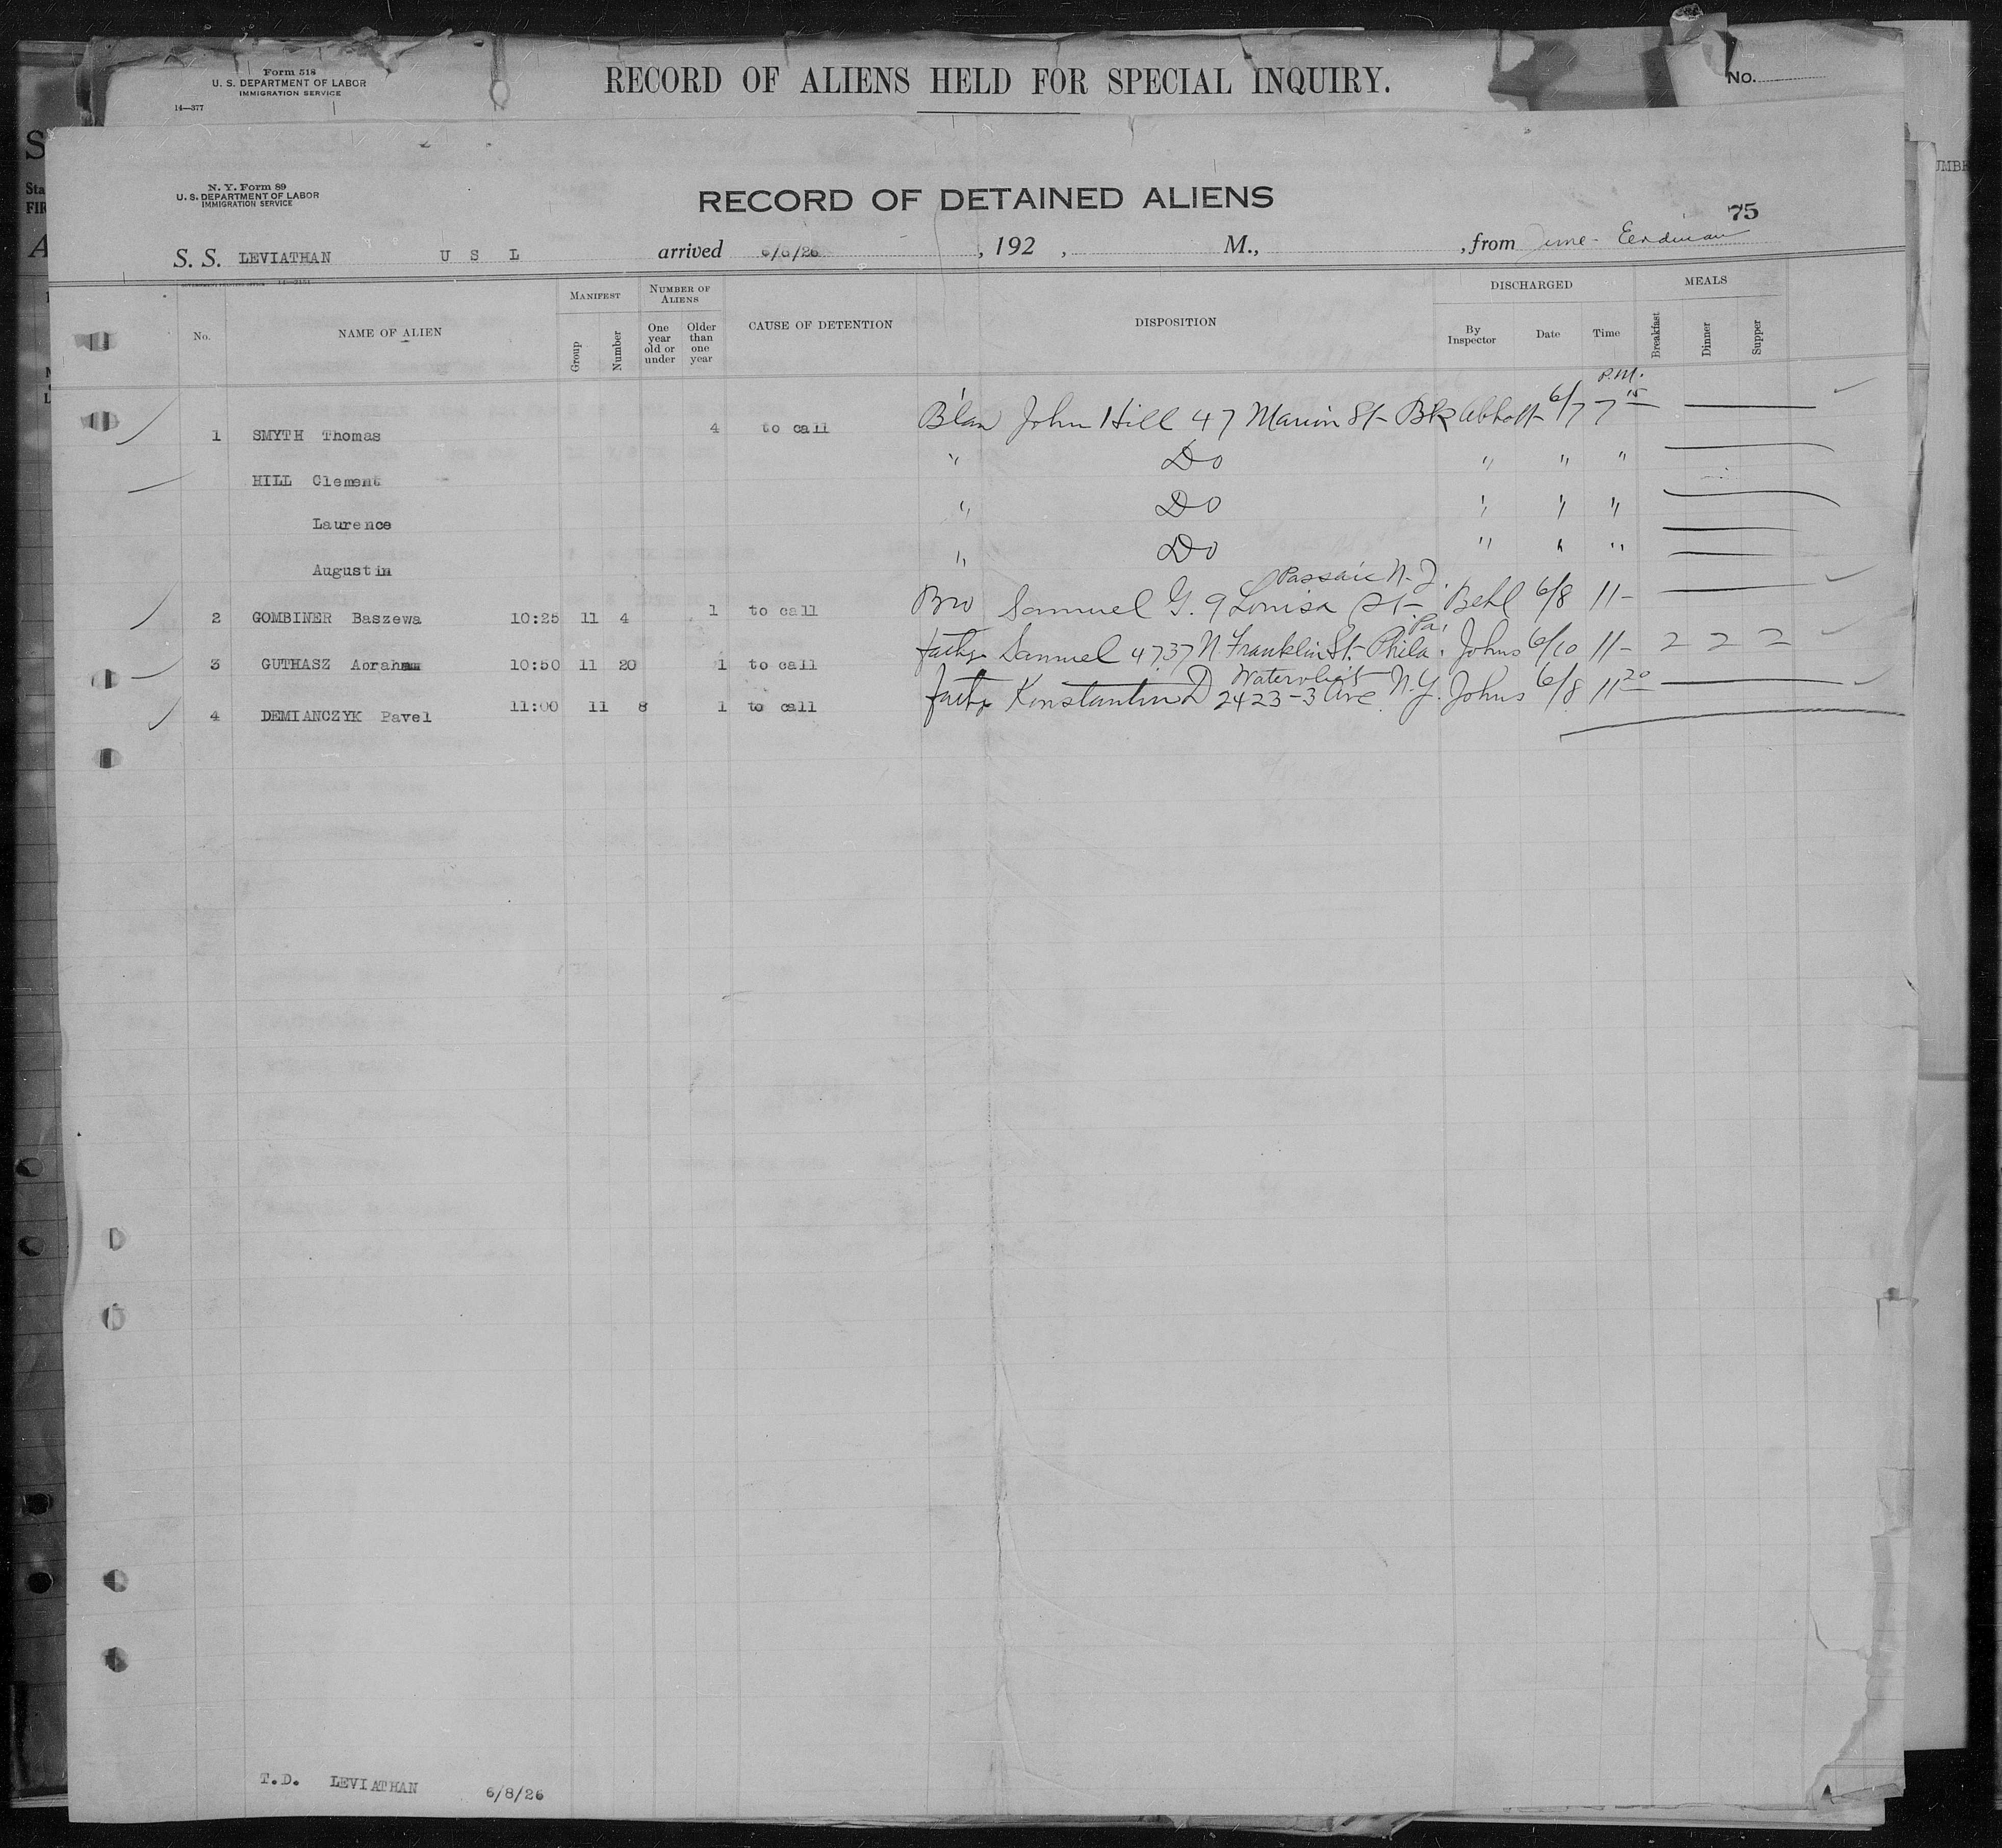 Form 518
U. S. DEPARTMENT OF LABOR
IMMIGRATION SERVICE
14—377
RECORD OF ALIENS HELD FOR SPECIAL INQUIRY.
No.
N. Y. Form 89
U. S. DEPARTMENT OF LABOR
IMMIGRATION SERVICE
RECORD OF DETAINED ALIENS
75
S. S. LEVIATHAN U S L arrived 6/6/26 , 192 , M., , from
No. NAME OF ALIEN MANIFEST Group Number NUMBER OF ALIENS One year old or under Older than one year CAUSE OF DETENTION DISPOSITION DISCHARGED By Inspector Date Time MEALS Breakfast Dinner Supper
P.M.
1 SMYTH Thomas 4 to call John Hill 47 Marion St- Bk Abbott 6/7 7 15
HILL Clement " Do " " "
Laurence " Do " " "
Augustin " Do " " "
Passaic N. J.
2 GOMBINER Baszewa 10:25 11 4 1 to call Bro Samuel G. 9 Louisa St- Behl 6/8 11-
Pa.
3 GUTHASZ Abraham 10:50 11 20 1 to call father Samuel 4737 N. Franklin St. Phila. Johns 6/10 11- 2 2 2
Watervliet
4 DEMIANCZYK Pavel 11:00 11 8 1 to call father Konstantin D 2423-3 Ave. N.Y. Johns 6/8 11 20
T.D. LEVIATHAN 6/8/26